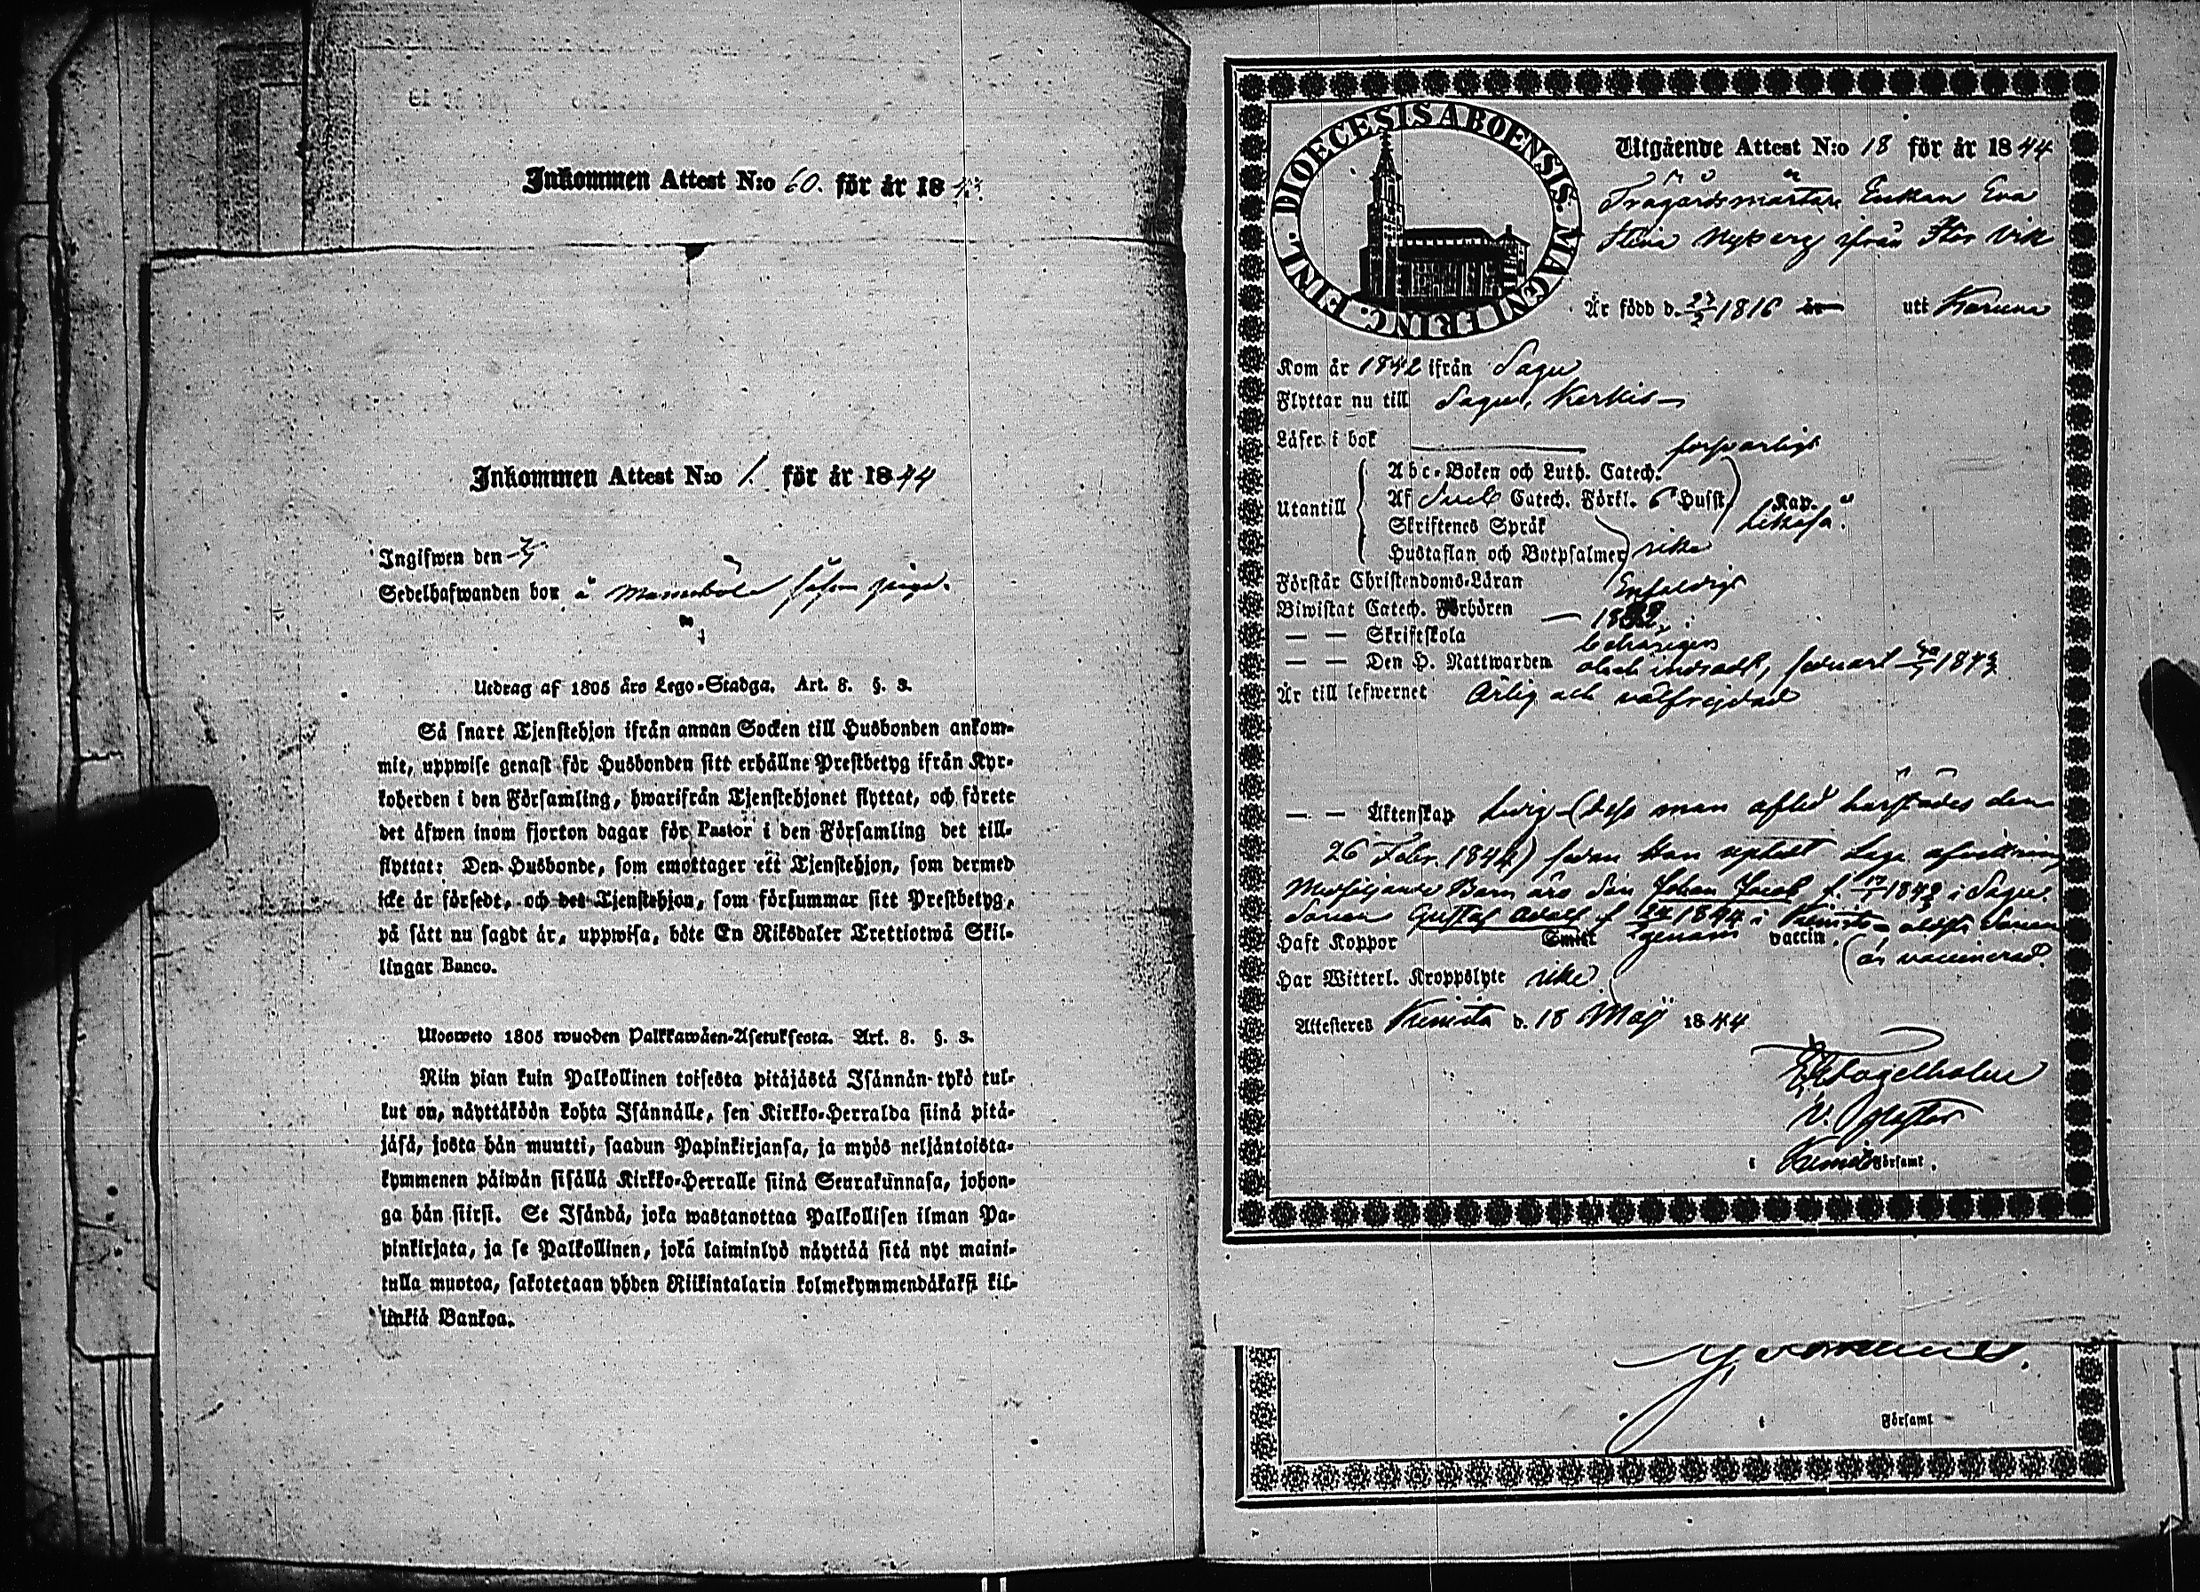 Inkommen Attest N:o 60. för år 18
Inkommen Attest N:o 1. för år 1844
Ingifwen den
Sedelhafwanden bor å såsom piga.
Utdrag af 1805 års Lego-Stadga. Art. 8. §. 3.
Så snart Tjenstehjon ifrån annan Socken till Husbonden ankom-
mit, uppwise genast för Husbonden sitt erhållne Prestbetyg ifrån Kyr-
koherden i den Församling, hwarifrån Tjenstehjonet flyttat, och förete
det äfwen inom fjorton dagar för Pastor i den Församling det till-
flyttat: Den Husbonde, som emottager ett Tjenstehjon, som dermed
icke är försedt, och det Tjenstehjon, som försummar sitt Prestbetyg,
på sätt nu sagdt är, uppwisa, böte En Riksdaler Trettiotwå Skil-
lingar Banco.
Ulosweto 1805 wuoden Palkkawäen-Asetuksesta. Art. 8. §. 3.
Niin pian kuin Palkollinen toisesta pitäjästä Isännän tykö tul-
lut on, näyttäköön kohta Isännälle, sen Kirkko-Herralda siinä pitä-
jäsä, josta hän muutti, saadun Papinkirjansa, ja myös neljäntoista-
kymmenen päiwän sisällä Kirkko-Herralle siinä Seurakunnasa, johon-
ga hän siirst. Se Isändä, joka wastanottaa Palkollisen ilman Pa-
pinkirjata, ja se Palkollinen, joka laiminlyö näyttää sitä nyt maini-
tulla muotoa, sakotetaan yhden Riikintalarin kolmekymmendäkaksi kil-
linkiä Bankoa.
DIOECESIS ABOENSIS. MAGNI PRINC. FINL.
Utgående Attest N:o 18 för år 1844
Trägårdsmästare Enkan Eva
Stina Nyberg ifrån Stor Vik
Är född d. 27/2 1816 år utt Karuna
Kom år 1842 ifrån Sagu
Flyttar nu till Sagu, Kerkis
Läser i bok försvarligt
Utantill
Abc-Boken och Luth. Catech.
Af Catech. Förkl. 6 Husst. Kap.
Skriftenes Språk likaså
Hustaflan och Botpsalmer icke
Förstår Christendoms-Läran Enfaldigt
Biwistat Catech. Förhören 18
— — Skriftskola behörigen
— — Den H. Nattwarden
Är till lefwernet Ärlig och välfrejdad
— — Äktenskap Ledig (dess man afled härstädes den
26 Febr. 1844)
Medföljande Barn äro Son Johan Jacob f. i Sagu
Sonen Gustaf Adolf f. 1844 i Kimito
Haft Koppor Smitt genom vaccin. (är vaccinerad.
Har Witterl. Kroppslyte icke
Attesteres Kimito d. 18 Maij 1844
V. Pastor
i Kimito Församl.
i Församl